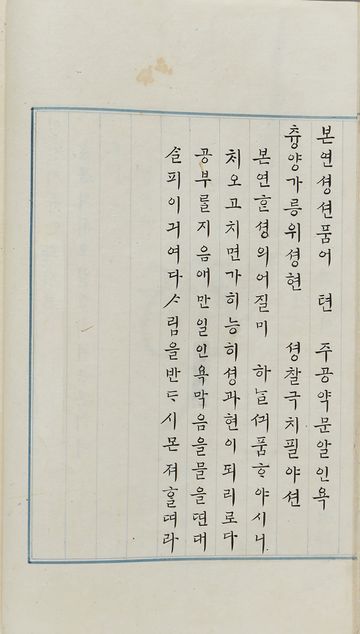 본연셩션품어텬 주공약문알인욕
츙양가릉위셩현 셩찰극치필야션
본연ᄒᆞᆫ셩의어질미 하ᄂᆞᆯᄭᅴ품ᄒᆞ야시니
치오고치면가히능히셩과현이되리로다
공부를지음애만일인욕막음을믈을띤대
ᄉᆞᆯ피이긔여다ᄉᆞ림을반ᄃᆞ시몬져ᄒᆞᆯ띠라